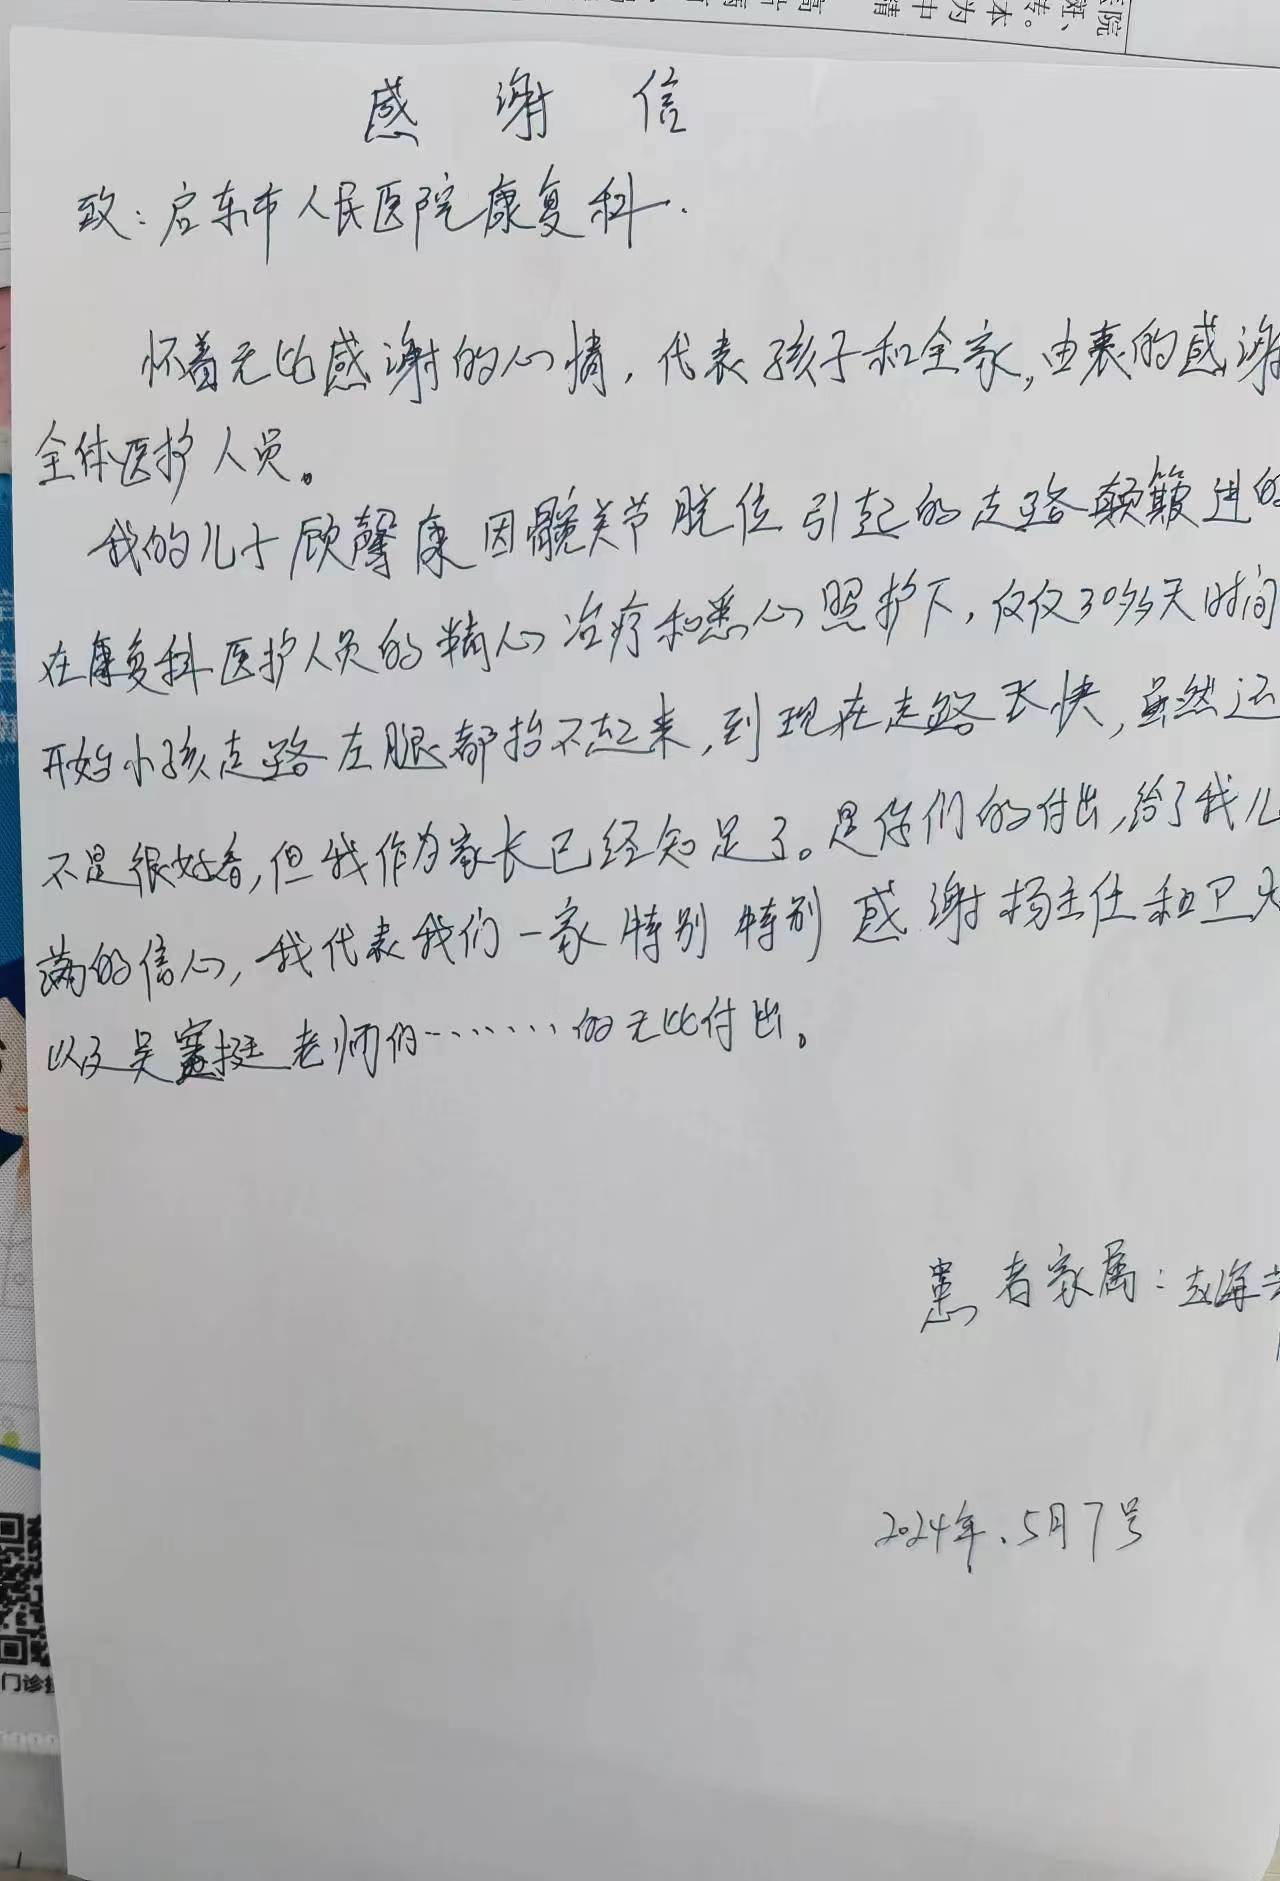 感谢信
致：启东市人民医院康复科.
怀着无比感谢的心情，代表孩子和全家,由衷的感谢
全体医护人员。
我的儿子顾馨康因髋关节脱位引起的走路颠簸进的
在康复科医护人员的精心治疗和悉心照护下，仅仅30多天时间
开始小孩走路左腿都抬不起来,到现在走路飞快,虽然还
不是很好看,但我作为家长已经知足了。是你们的付出,给了我儿
满的信心,我代表我们一家特别特别感谢杨主任和卫
以及吴寓挺老师们………的无比付出。
患者家属：赵海
2024年、5月7号
门诊